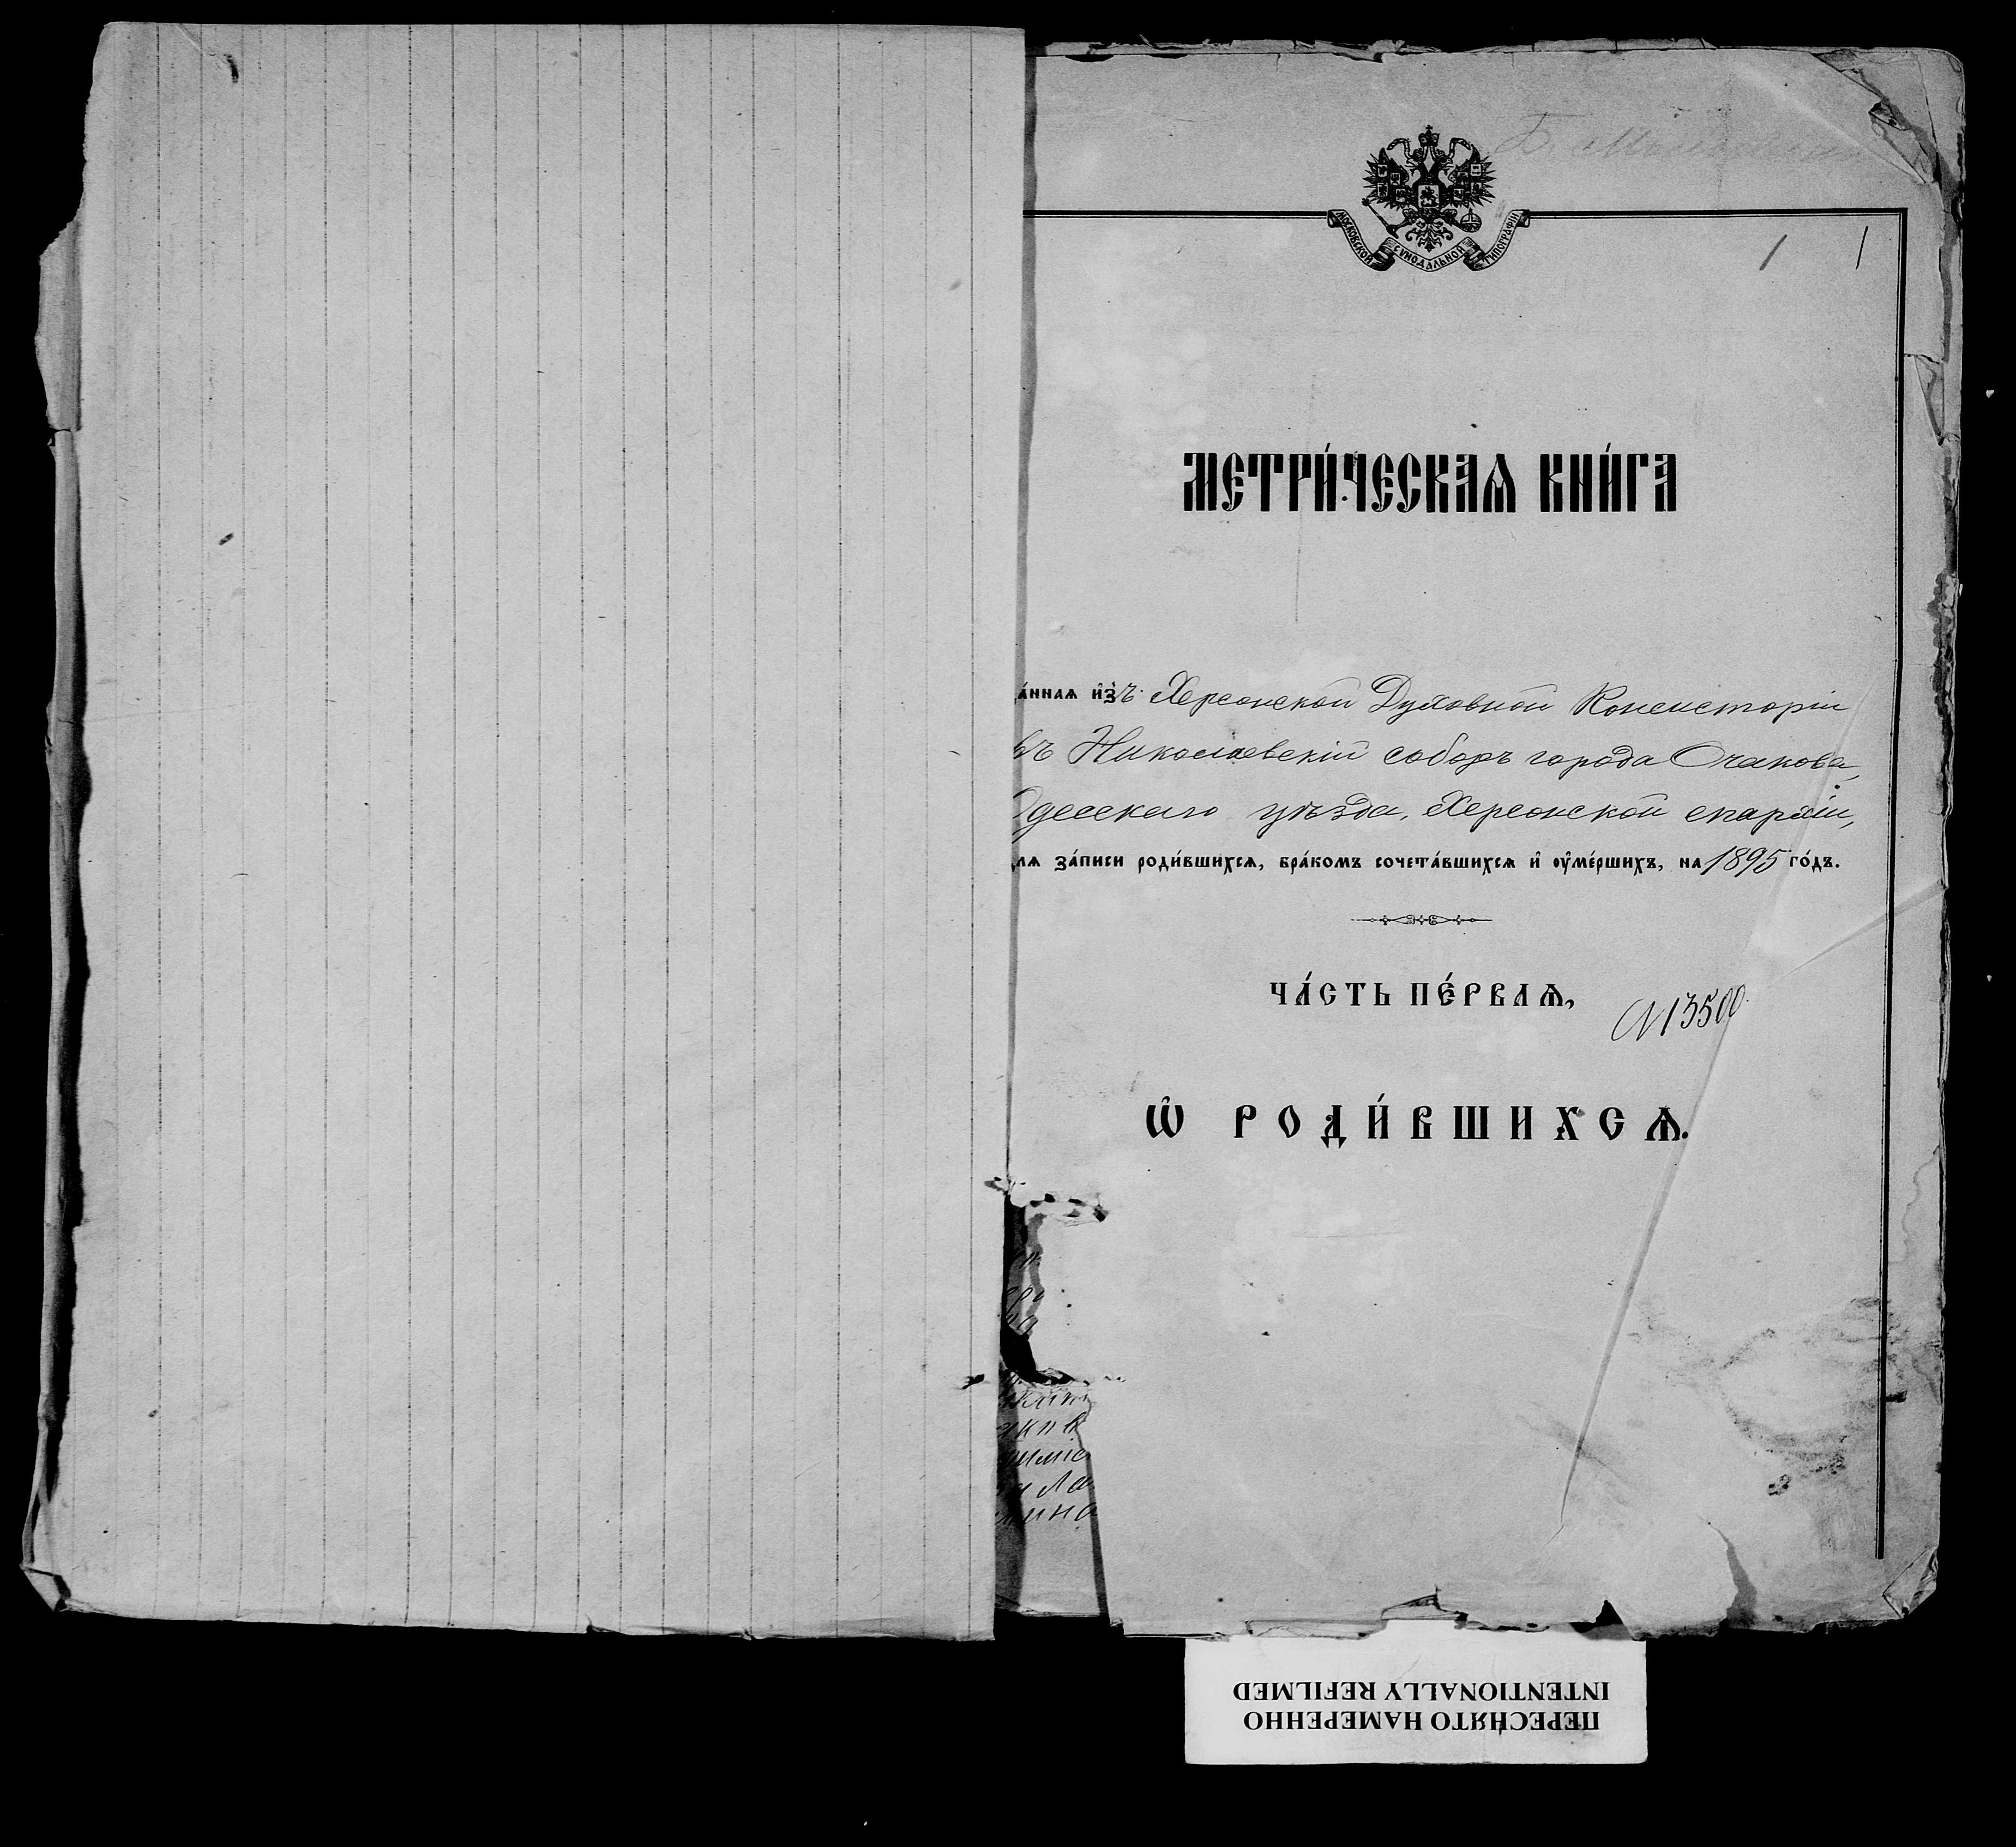 Б.
МОСКОВСКОЙ СѴНОДАЛЬНОЙ ТИПОГРАФІИ
1 1
МЕТРИ́ЧЕСКАѦ КНИ́ГА
а́ннаѧ и҆з̾ъ Херсонской Духовной Консисторіи
въ Николаевскій соборъ города Очакова,
Одесскаго уѣзда, Херсонской епархіи,
для за́писи роди́вшихсѧ, бра́комъ сочета́вшихсѧ и҆ ᲂу҆ме́ршихъ, на 1895 го́дъ.
ЧА́СТЬ ПЕ́РВАѦ,
N 13500
Ѽ РОДИ́ВШИХСѦ.
ПЕРЕСНЯТО НАМЕРЕННО
INTENTIONALLY REFILMED